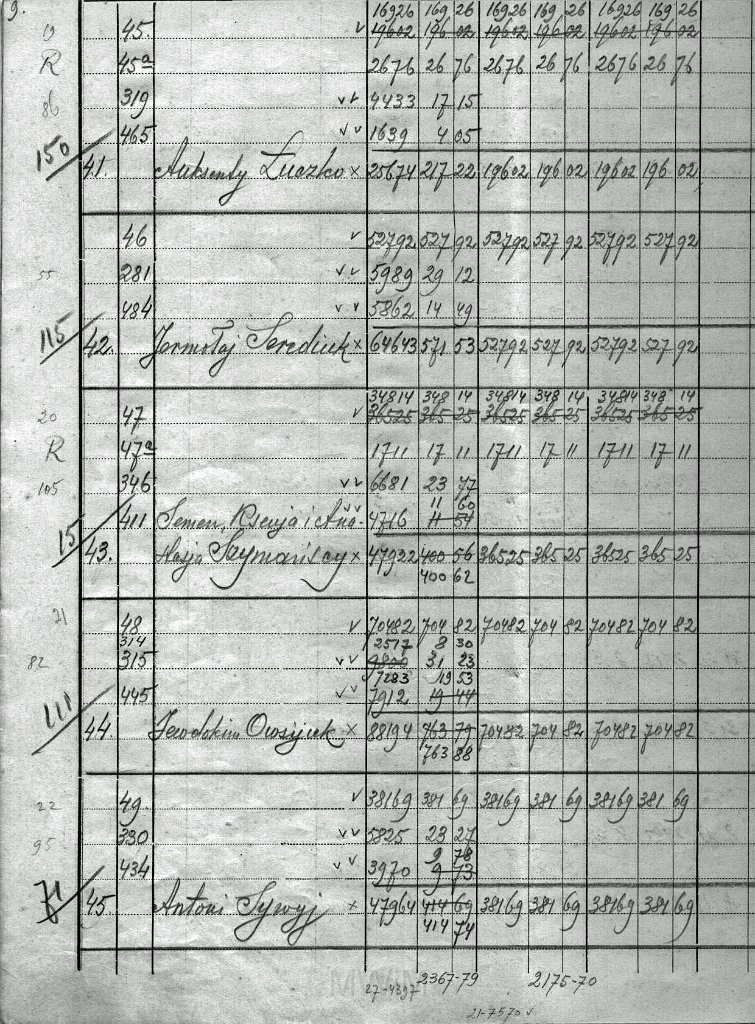 9.
16926 169 26 16926 169 26 16926 169 26
19 45. v 19602 196 02 19602 196 02 19602 196 02
R 45a 2676 26 76 2676 26 76 2676 26 76
86 319 vv 4433 17 15
465 vv 1639 4 05
150 41. Auksenty Łuczko x 25674 217 22 19602 196 02 19602 196 02
46 v 52792 527 92 52792 527 92 52792 527 92
55 281 vv 5989 29 12
484 vv 5862 14 49
115 42. Jermołaj Serediuk x 64643 571 53 52792 527 92 52792 527 92
34814 348 14 34814 348 14 34814 348 14
20 47 v 36525 365 25 36525 365 25 36525 365 25
R 47a 1711 17 11 1711 17 11 1711 17 11
105 346 vv 6681 23 77
11 60
411 Semen, Ksenja i Ana- vv 4716 11 54
15 43. stazja Szymańscy x 47922 400 56 36525 365 25 36525 365 25
400 62
21 48 v 70482 704 82 70482 704 82 70482 704 82
314 2517 8 30
82 315 vv 9800 31 23
7283 19 53
445 vv 7912 19 44
111 44. Jewdokim Owsijuk x 88194 763 79 70482 704 82 70482 704 82
763 88
22 49. v 38169 381 69 38169 381 69 38169 381 69
95 330 vv 5825 23 27
9 78
434 vv 3970 9 73
71 45. Antoni Sywyj x 47964 414 69 38169 381 69 38169 381 69
414 74
27-4397 2367-79 2175-70
21-7570 v